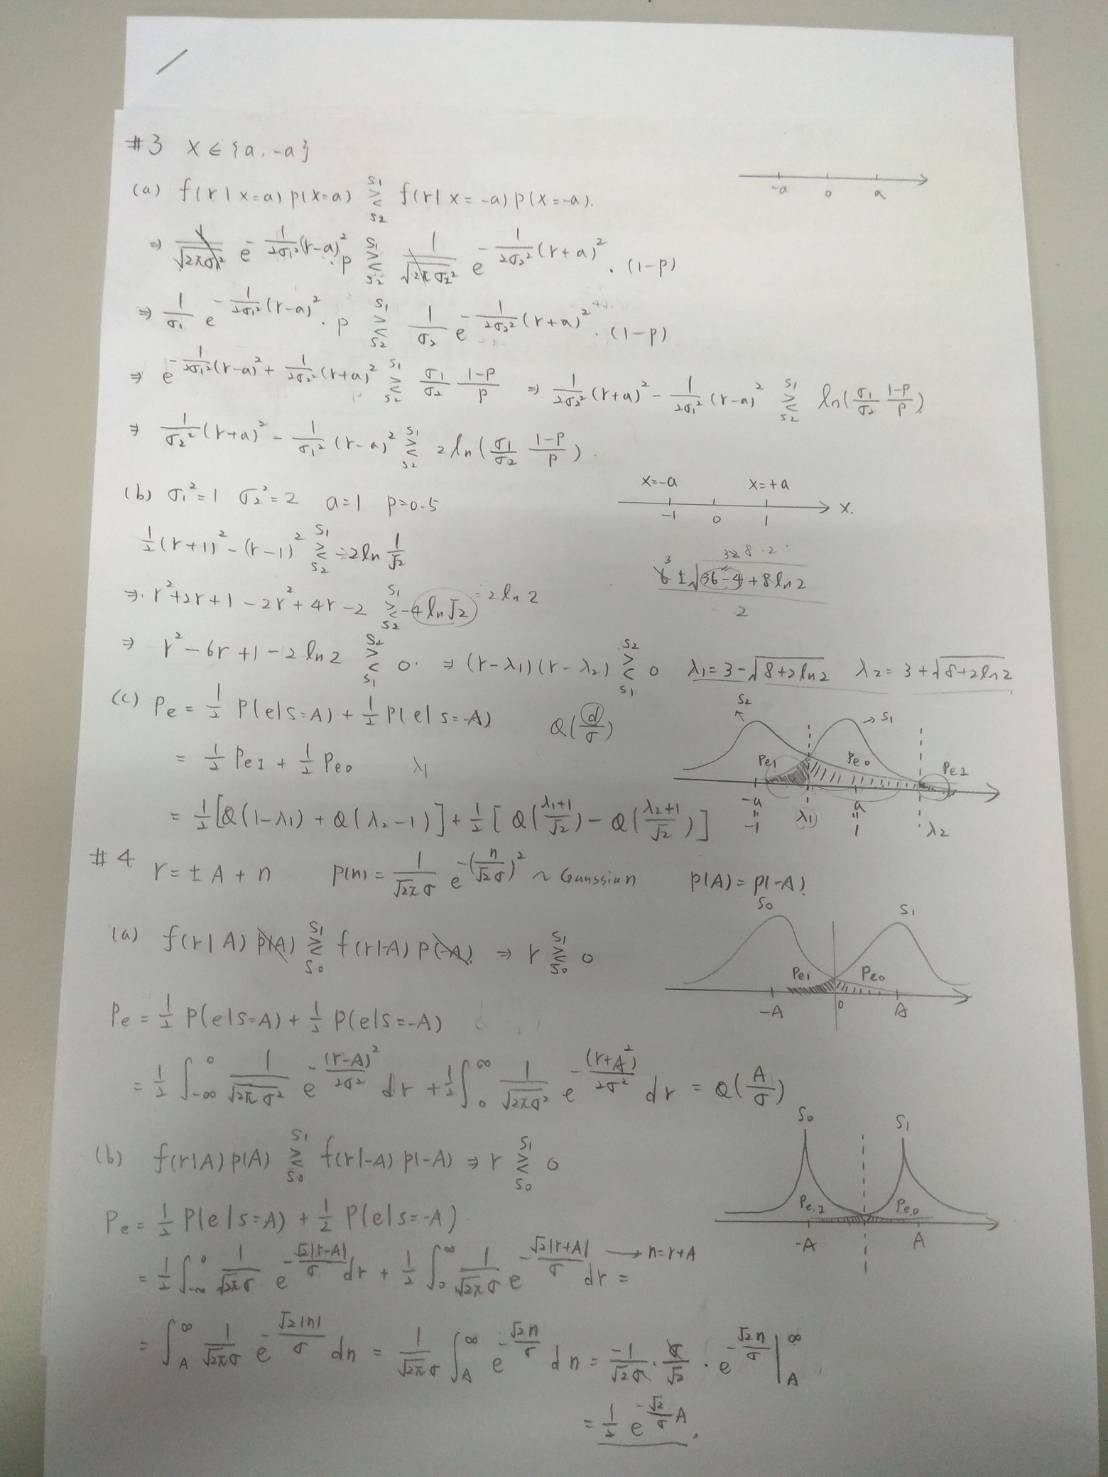 #3 X ∈ {a, -a}
-a 0 a
(a) f(r|x=a) p(x=a) ≷ (S1, S2) f(r|x=-a) p(x=-a).
⇒ 1/√(2πσ1²) e^(-1/(2σ1²)(r-a)²) · p ≷ (S1, S2) 1/√(2πσ2²) e^(-1/(2σ2²)(r+a)²) · (1-p)
⇒ 1/σ1 e^(-1/(2σ1²)(r-a)²) · p ≷ (S1, S2) 1/σ2 e^(-1/(2σ2²)(r+a)²) · (1-p)
⇒ e^(-1/(2σ1²)(r-a)² + 1/(2σ2²)(r+a)²) ≷ (S1, S2) σ1/σ2 (1-p)/p ⇒ 1/(2σ2²)(r+a)² - 1/(2σ1²)(r-a)² ≷ (S1, S2) ln(σ1/σ2 (1-p)/p)
⇒ 1/σ2² (r+a)² - 1/σ1² (r-a)² ≷ (S1, S2) 2ln(σ1/σ2 (1-p)/p).
(b) σ1²=1 σ2²=2 a=1 p=0.5
x=-a x=+a
-1 0 1 x.
1/2(r+1)² - (r-1)² ≷ (S1, S2) 2ln 1/√2
⇒ r²+2r+1-2r²+4r-2 ≷ (S1, S2) -4ln√2 = 2ln2
6 ± √(36-4+8ln2) / 2
⇒ r²-6r+1-2ln2 ≷ (S2, S1) 0. ⇒ (r-λ1)(r-λ2) ≷ (S2, S1) 0 λ1=3-√(8+2ln2) λ2=3+√(8+2ln2)
(c) Pe = 1/2 P(e|s=A) + 1/2 P(e|s=-A) Q(d/σ)
= 1/2 Pe1 + 1/2 Pe0 λ1
= 1/2[Q(1-λ1) + Q(λ2-1)] + 1/2[Q((λ1+1)/√2) - Q((λ2+1)/√2)]
S2 S1
Pe1 Pe0 Pe1
-a λ1 a λ2
-1 1
#4 r = ±A + n p(n) = 1/(√(2π)σ) e^(-(n/(√2σ))²) ~ Gaussian p(A) = p(-A)
(a) f(r|A) p(A) ≷ (S1, S0) f(r|-A) p(-A) ⇒ r ≷ (S1, S0) 0
S0 S1
Pe1 Pe0
-A 0 A
Pe = 1/2 P(e|s=A) + 1/2 P(e|s=-A)
= 1/2 ∫_{-∞}^{0} 1/√(2πσ²) e^(-(r-A)²/(2σ²)) dr + 1/2 ∫_{0}^{∞} 1/√(2πσ²) e^(-(r+A)²/(2σ²)) dr = Q(A/σ)
(b) f(r|A) p(A) ≷ (S1, S0) f(r|-A) p(-A) ⇒ r ≷ (S1, S0) 0
S0 S1
Pe,1 Pe,0
-A A
Pe = 1/2 P(e|s=A) + 1/2 P(e|s=-A)
= 1/2 ∫_{-∞}^{0} 1/(√2σ) e^(-√2|r-A|/σ) dr + 1/2 ∫_{0}^{∞} 1/(√2σ) e^(-√2|r+A|/σ) dr = → n=r+A
= ∫_{A}^{∞} 1/(√2σ) e^(-√2|n|/σ) dn = 1/(√2σ) ∫_{A}^{∞} e^(-√2n/σ) dn = -1/(√2σ) · σ/√2 · e^(-√2n/σ) |_{A}^{∞}
= 1/2 e^(-√2/σ A).